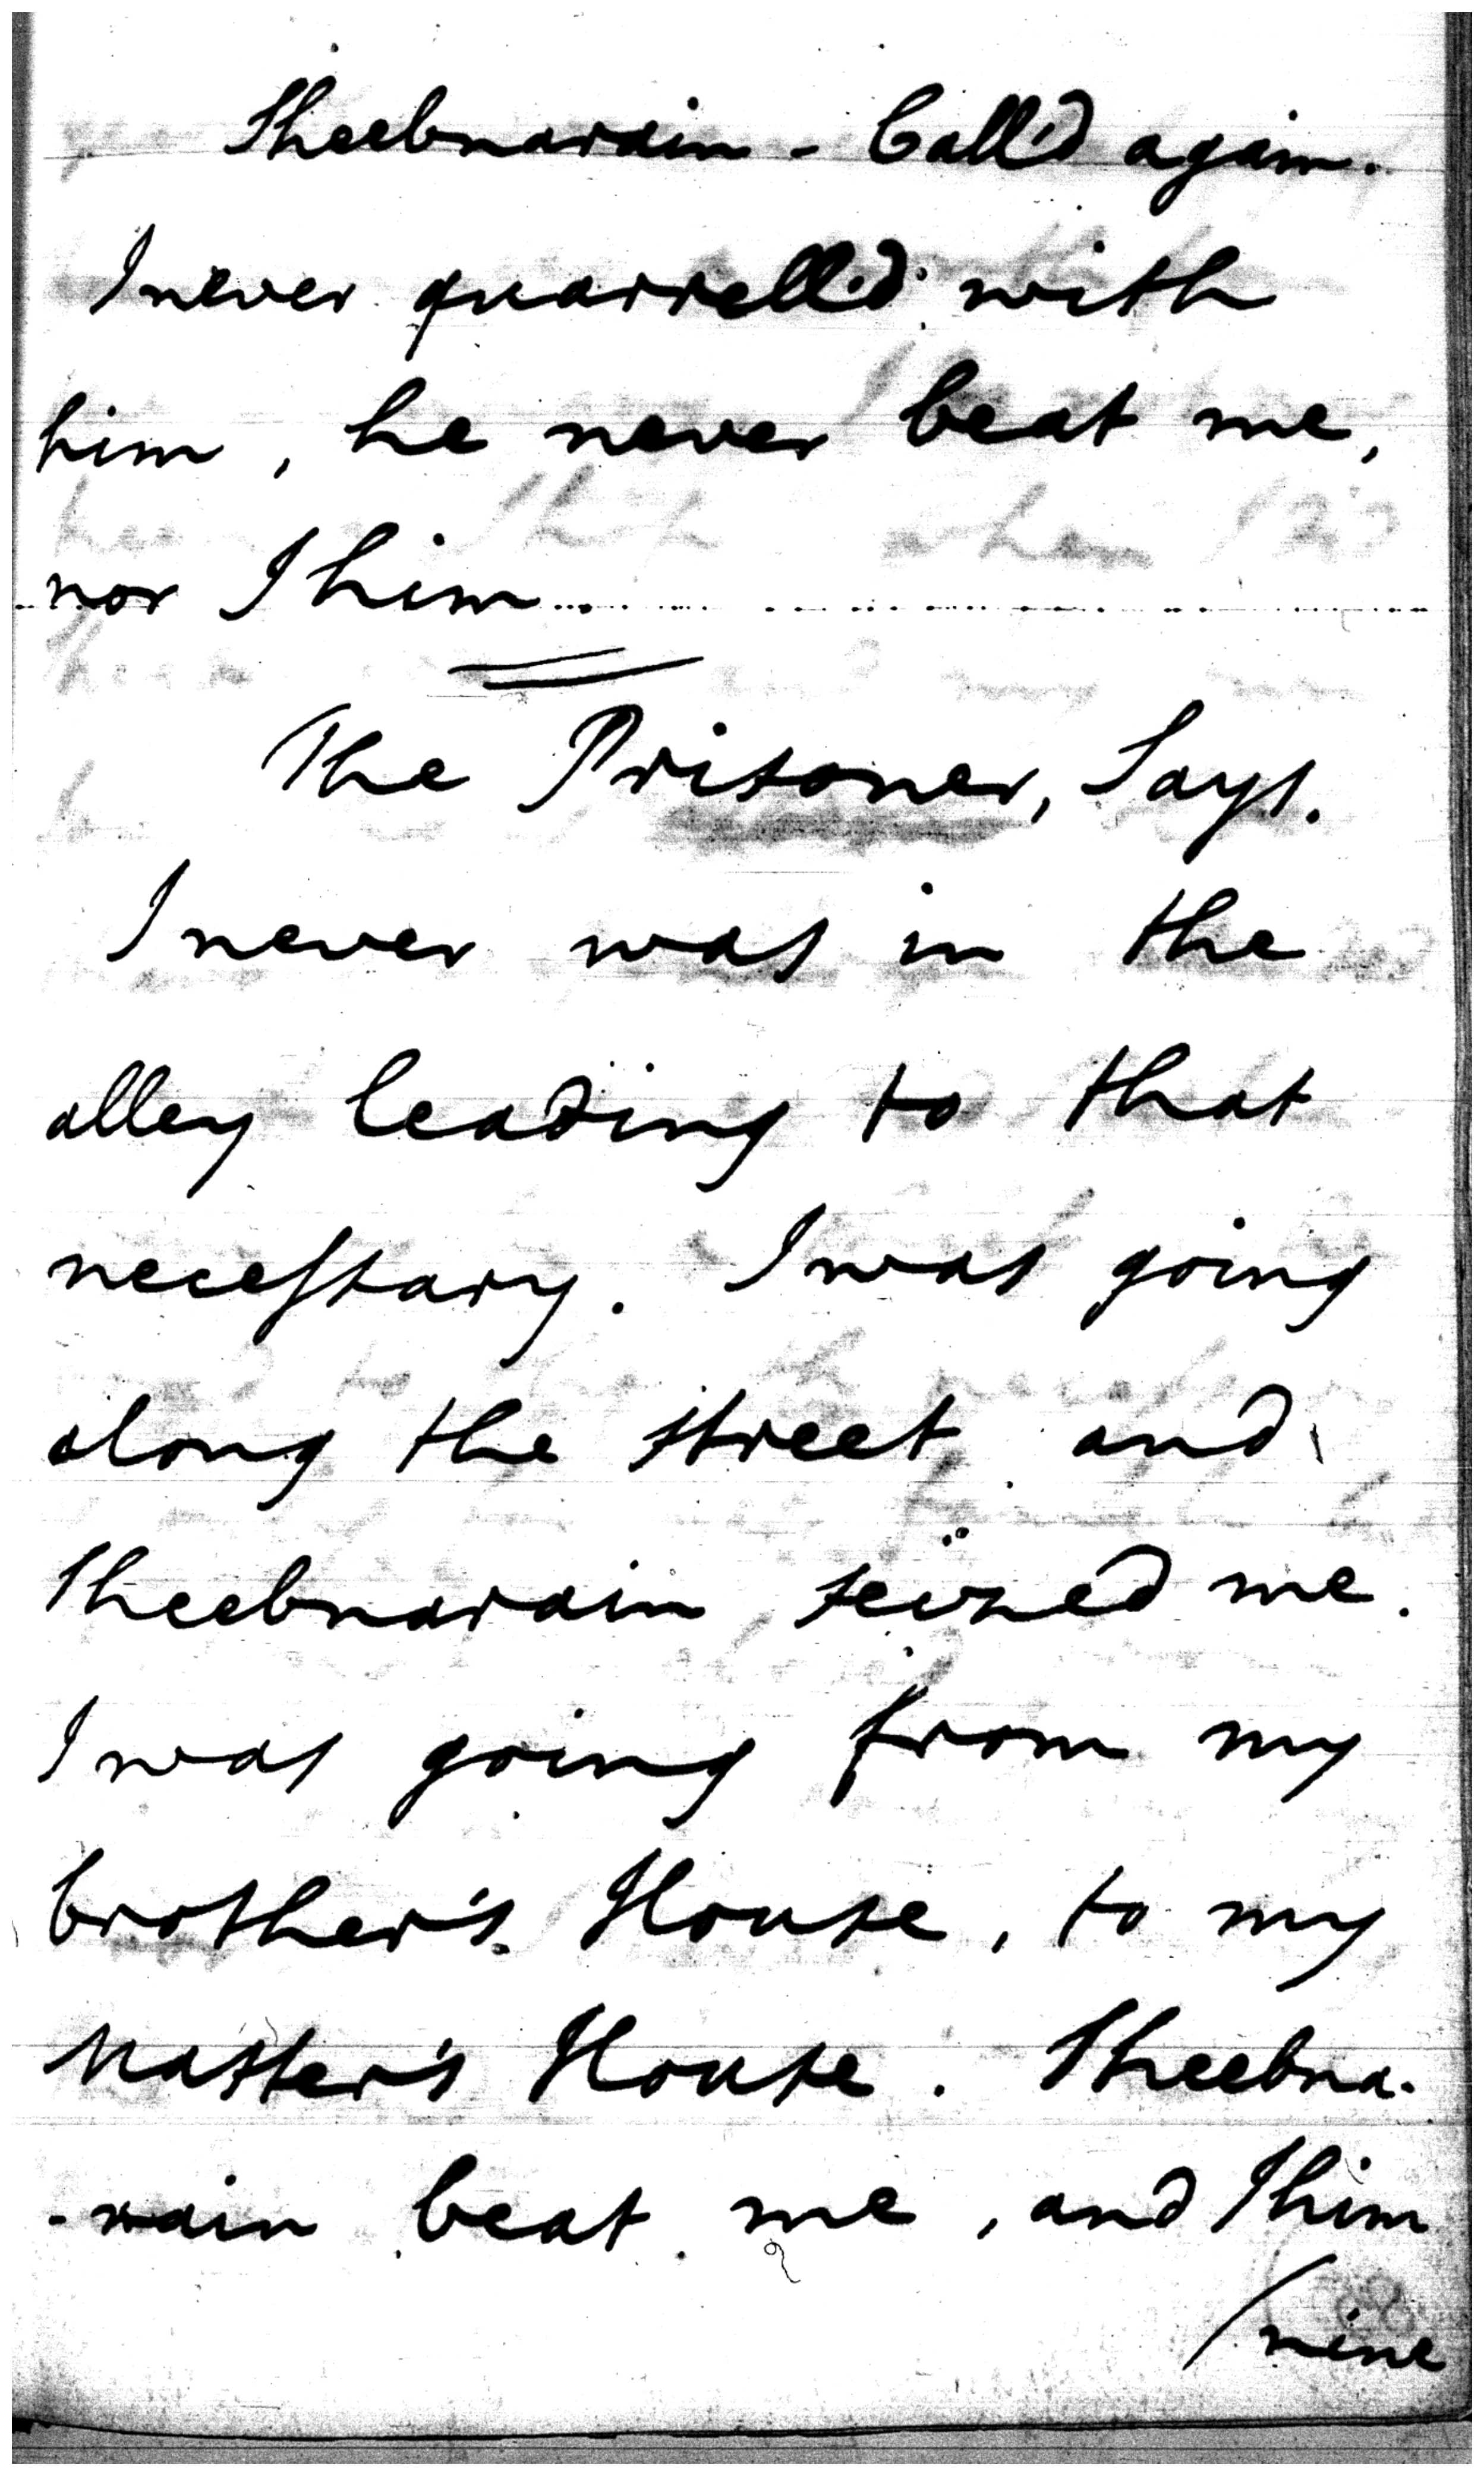 Sheebnarain - Call'd again.
I never quarrell'd with
him, he never beat me,
nor I him.
The Prisoner, Says.
I never was in the
alley leading to that
necessary. I was going
along the street and
Sheebnarain seized me.
I was going from my
brother's House, to my
Master's House. Sheebna-
-rain beat me, and I him
/nine